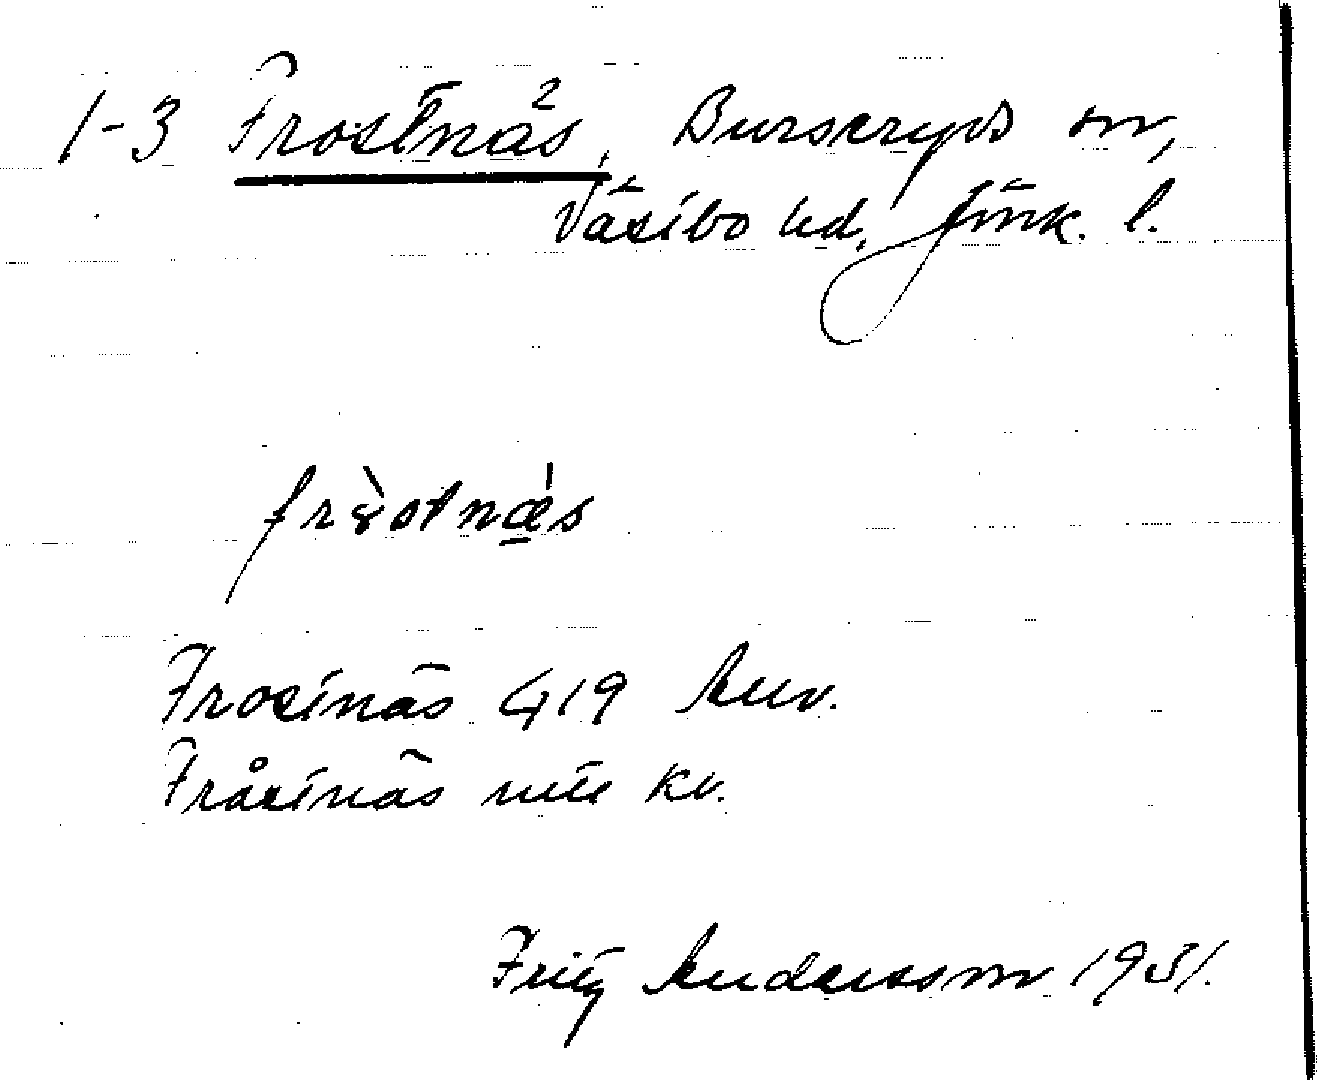 1-3 Frostnäs², Burseryds sn,
Västbo hd, Jönk. l.
frɤ̀stnǽs
Frostnäs 419 Auv.
Fråstnäs utt. kv.
Fritz Andersson 1931.